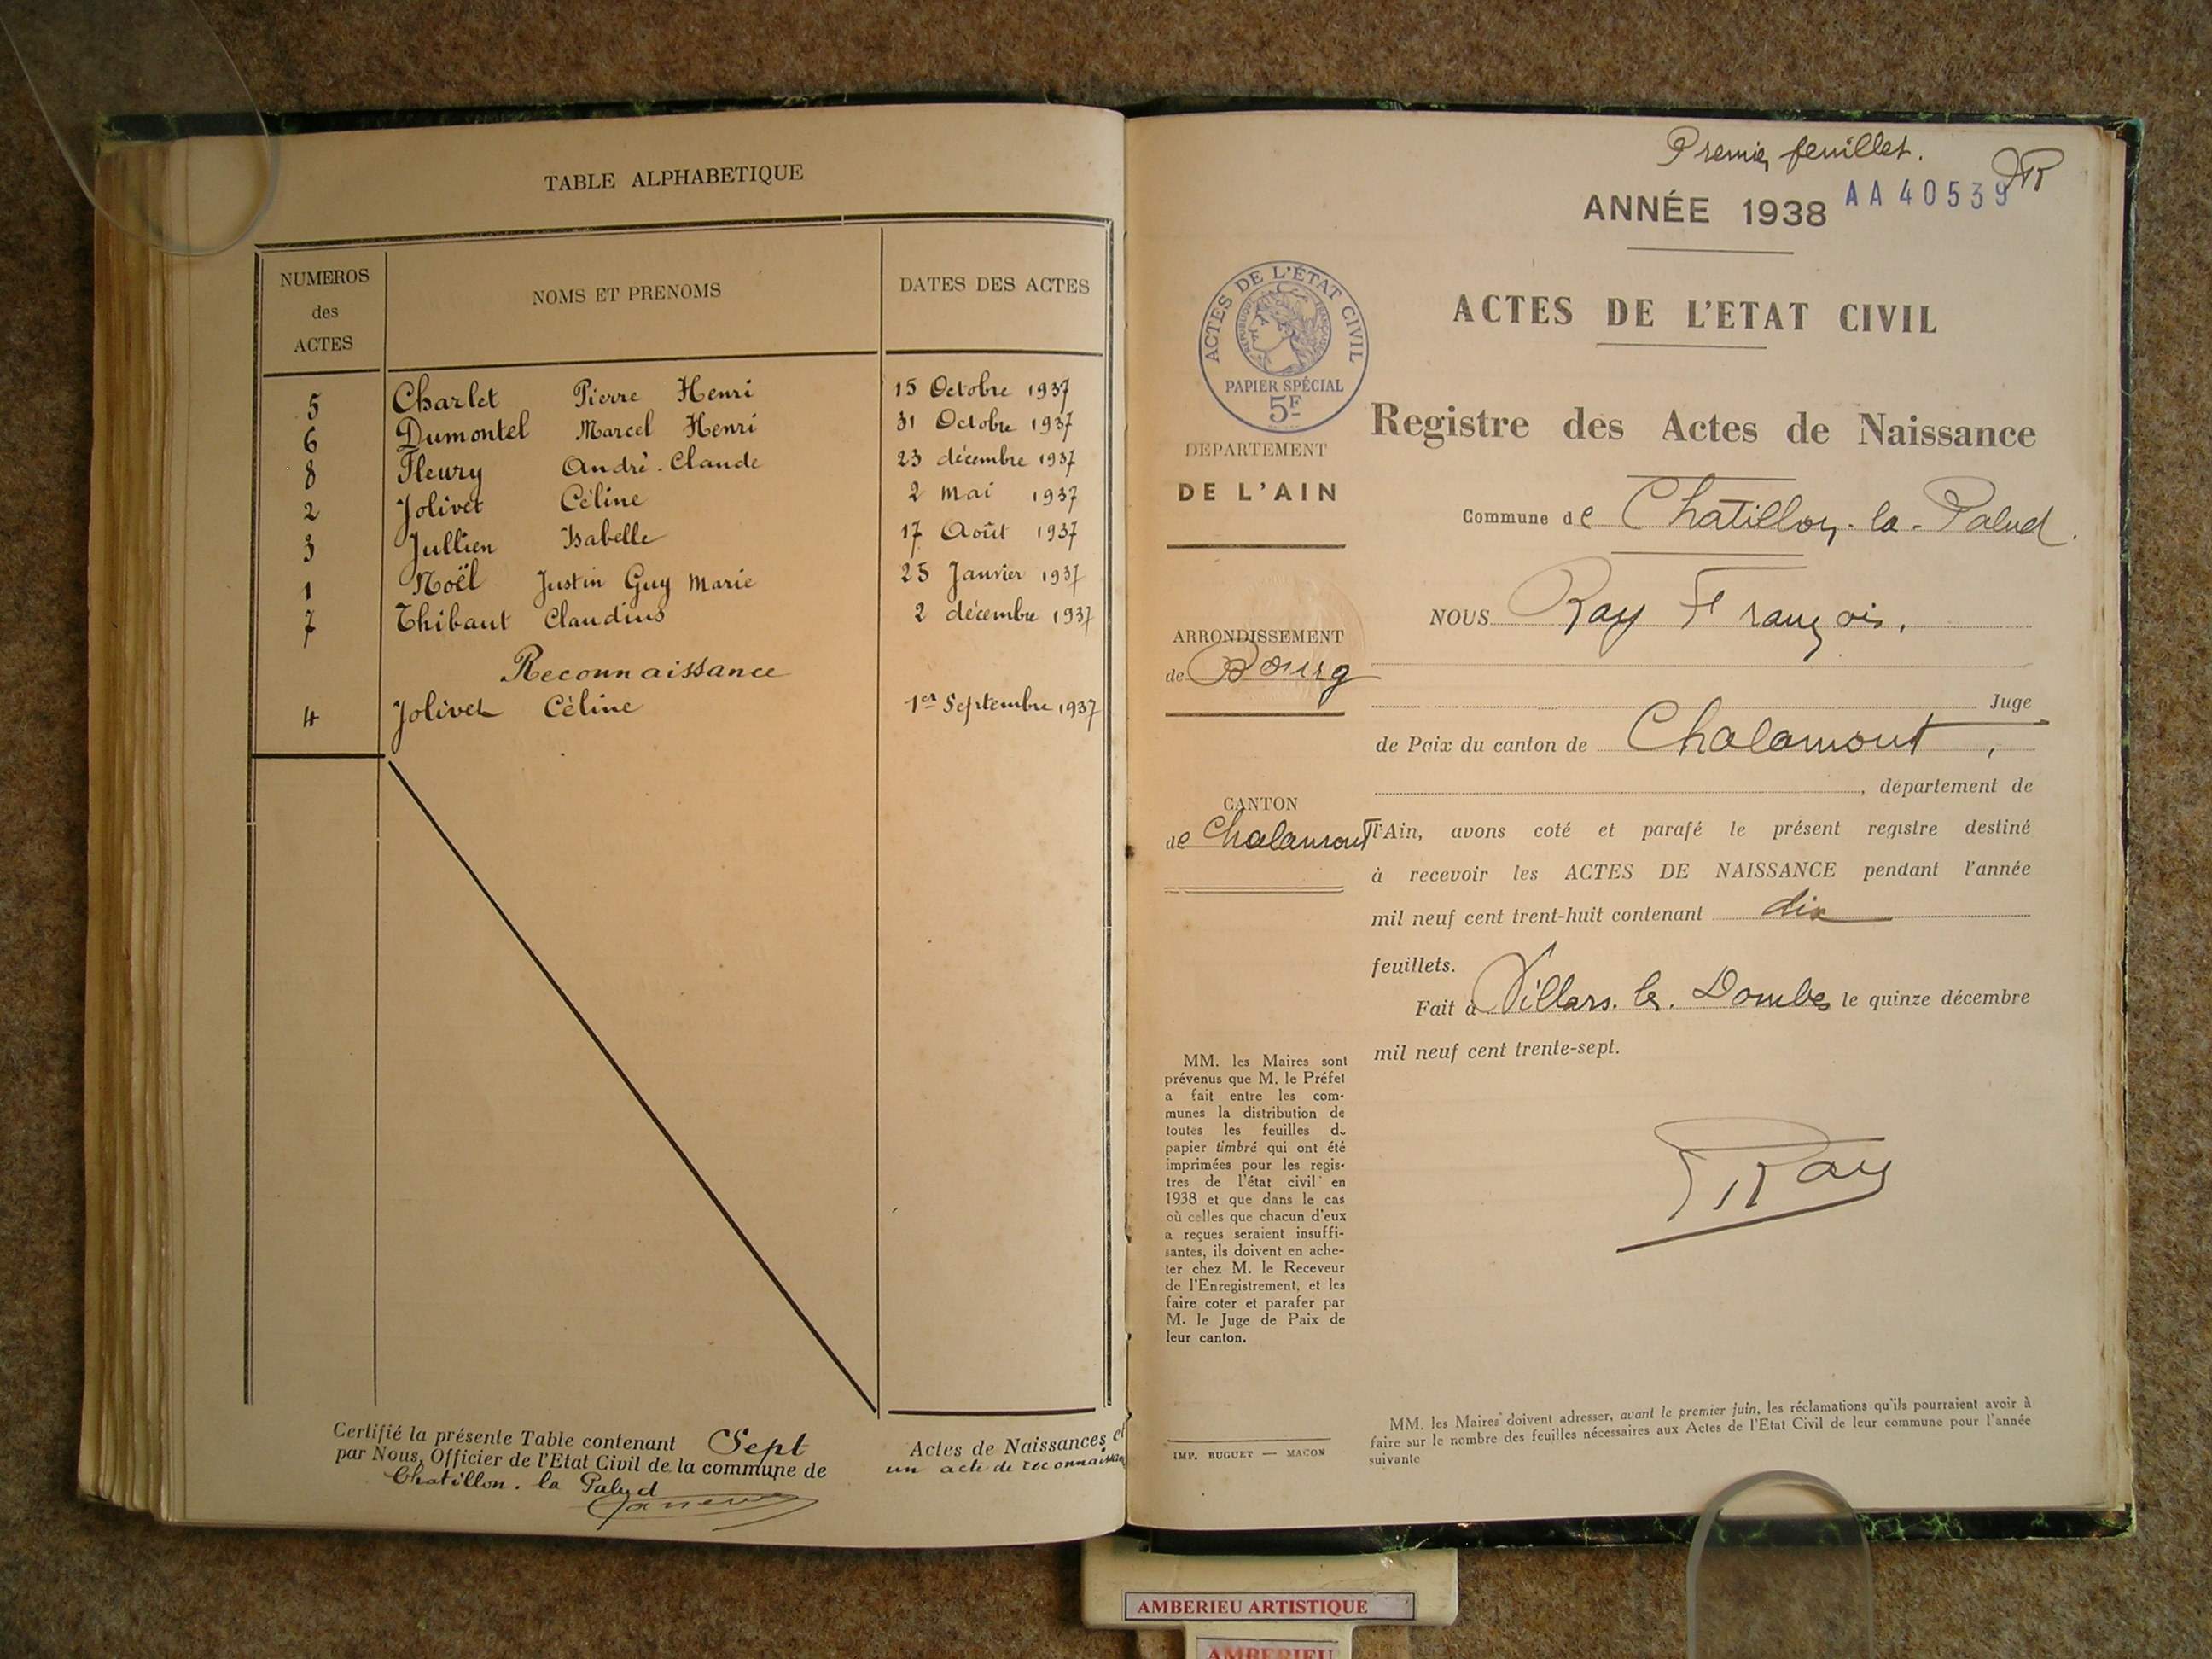 TABLE ALPHABETIQUE
NUMEROS des ACTES
NOMS ET PRENOMS
DATES DES ACTES
5 Charlet Pierre Henri 15 Octobre 1937
6 Dumontel Marcel Henri 31 Octobre 1937
8 Fleury André-Claude 23 décembre 1937
2 Jolivet Céline 2 mai 1937
3 Jullien Isabelle 17 Août 1937
1 Noël Justin Guy Marie 25 Janvier 1937
7 Thibaut Claudius 2 décembre 1937
Reconnaissance
4 Jolivet Céline 1er Septembre 1937
Certifié la présente Table contenant Sept Actes de Naissances et
par Nous, Officier de l'Etat Civil de la commune de un acte de reconnaissance
Chatillon-la Palud
Premier feuillet.
ANNÉE 1938 AA 40539
ACTES DE L'ÉTAT CIVIL
RÉPUBLIQUE FRANÇAISE
PAPIER SPÉCIAL
5F
ACTES DE L'ETAT CIVIL
Registre des Actes de Naissance
DEPARTEMENT
DE L'AIN
Commune de Chatillon-la-Palud.
NOUS Ray François,
ARRONDISSEMENT
de Bourg
Juge
de Paix du canton de Chalamont,
, département de
CANTON
de Chalamont
l'Ain, avons coté et parafé le présent registre destiné
à recevoir les ACTES DE NAISSANCE pendant l'année
mil neuf cent trent-huit contenant dix
feuillets.
Fait à Villars-les-Dombes le quinze décembre
mil neuf cent trente-sept.
Ray
MM. les Maires sont
prévenus que M. le Préfet
a fait entre les com-
munes la distribution de
toutes les feuilles de
papier timbré qui ont été
imprimées pour les regis-
tres de l'état civil en
1938 et que dans le cas
où celles que chacun d'eux
a reçues seraient insuffi-
santes, ils doivent en ache-
ter chez M. le Receveur
de l'Enregistrement, et les
faire coter et parafer par
M. le Juge de Paix de
leur canton.
IMP. BUGUET — MACON
MM. les Maires doivent adresser, avant le premier juin, les réclamations qu'ils pourraient avoir à
faire sur le nombre des feuilles nécessaires aux Actes de l'Etat Civil de leur commune pour l'année
suivante
AMBERIEU ARTISTIQUE
AMBERIEU